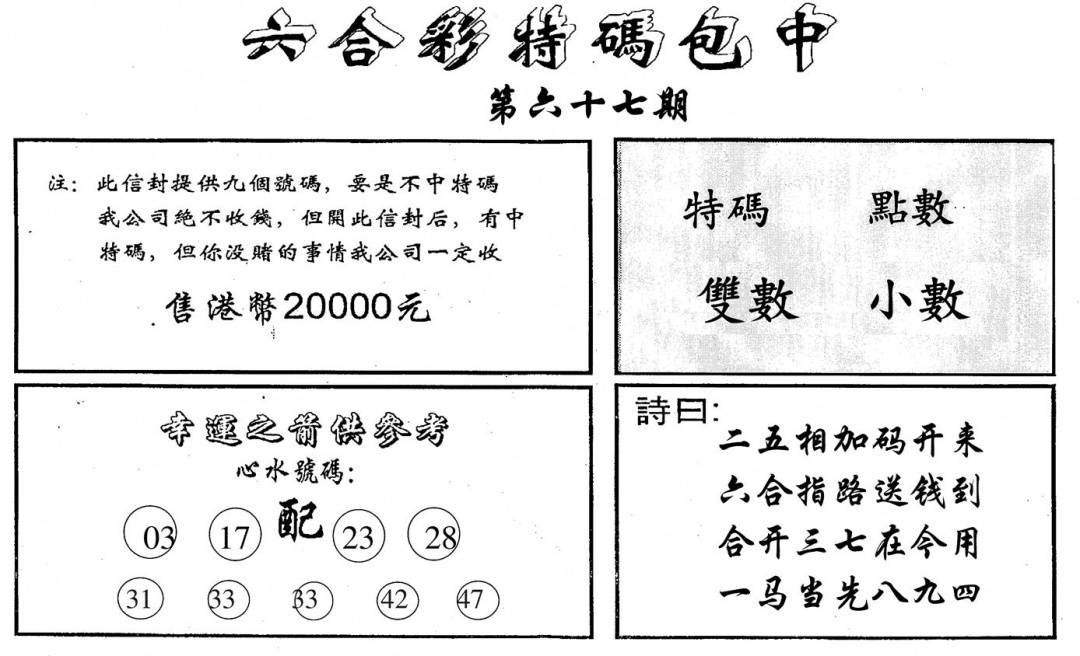 六合彩特碼包中
第六十七期
注：此信封提供九個號碼，要是不中特碼
我公司絕不收錢，但開此信封后，有中
特碼，但你没賭的事情我公司一定收
售港幣20000元
特碼 點數
雙數 小數
幸運之箭供參考
心水號碼：
03 17 配 23 28
31 33 33 42 47
詩曰：
二五相加码开来
六合指路送钱到
合开三七在今用
一马当先八九四